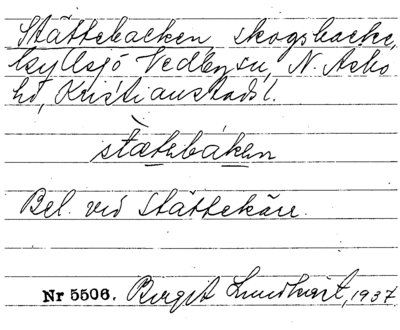 Stättebacken, skogsbacke,
Kyllsjö Vedbysn, N. Åsbo
hd, Kristianstads l.
stætebáken
Bel. vid Stättekärr.
Nr 5506. Birgit Lundkvist, 1937.